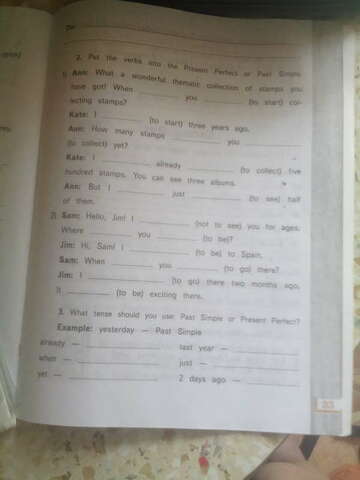 2. Put the verbs into the Present Perfect or Past Simple.
1) Ann: What a wonderful thematic collection of stamps you
have got! When ________ you ________ (to start) col-
lecting stamps?
Kate: I ________ (to start) three years ago.
Ann: How many stamps ________ you ________
(to collect) yet?
Kate: I ________ already ________ (to collect) five
hundred stamps. You can see three albums.
Ann: But I ________ just ________ (to see) half
of them.
2) Sam: Hello, Jim! I ________ (not to see) you for ages.
Where ________ you ________ (to be)?
Jim: Hi, Sam! I ________ (to be) to Spain.
Sam: When ________ you ________ (to go) there?
Jim: I ________ (to go) there two months ago.
It ________ (to be) exciting there.
3. What tense should you use: Past Simple or Present Perfect?
Example: yesterday — Past Simple
already — ________ last year — ________
when — ________ just — ________
yet — ________ 2 days ago — ________
33